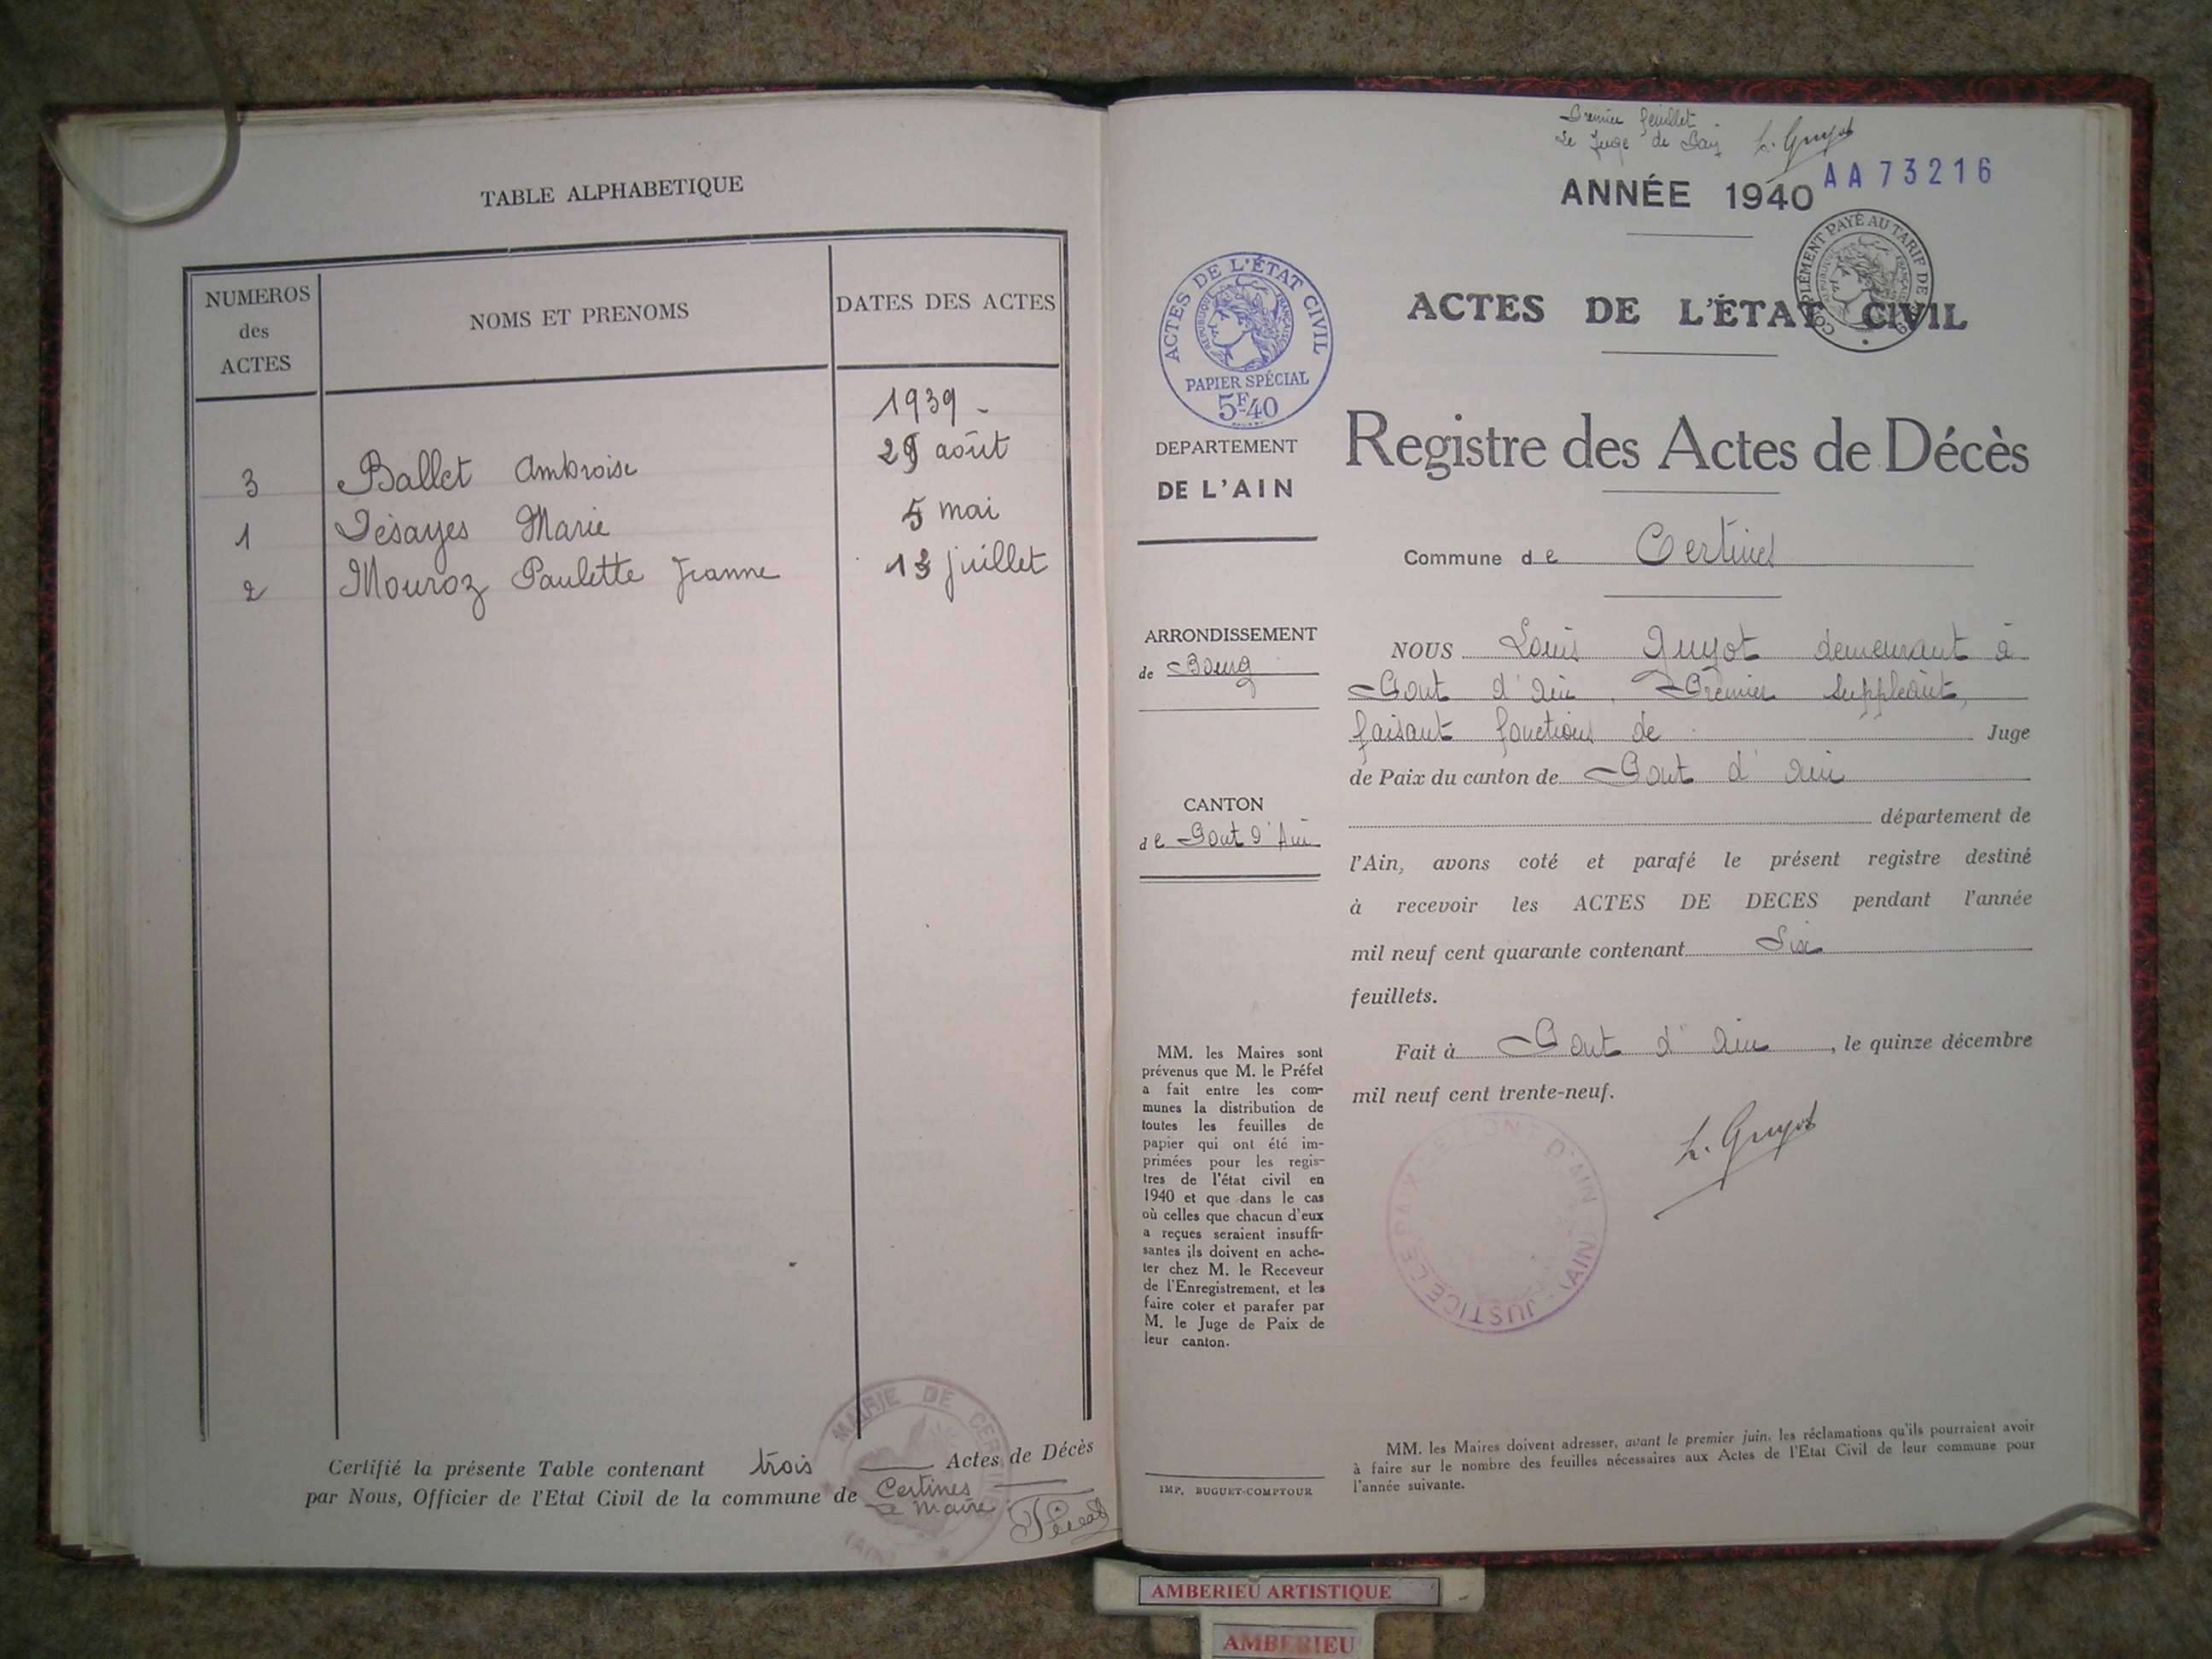 TABLE ALPHABETIQUE
NUMEROS
des
ACTES
NOMS ET PRENOMS
DATES DES ACTES
1939 -
3 Ballet Ambroise août
1 Désayes Marie 5 mai
2 Mouroz Paulette Jeanne 13 juillet
Certifié la présente Table contenant trois Actes de Décès
par Nous, Officier de l'Etat Civil de la commune de Certines
Le Maire
MAIRIE DE CERTINES
(AIN)
Premier feuillet
Le Juge de Paix L. Guyot
AA 73216
ANNÉE 1940
COMPLÉMENT PAYÉ AU TARIF DE
ACTES DE L'ÉTAT CIVIL
ACTES DE L'ÉTAT CIVIL
RÉPUBLIQUE FRANÇAISE
PAPIER SPÉCIAL
5F40
DEPARTEMENT
DE L'AIN
ARRONDISSEMENT
de Bourg
CANTON
de Pont d'Ain
MM. les Maires sont
prévenus que M. le Préfet
a fait entre les com-
munes la distribution de
toutes les feuilles de
papier qui ont été im-
primées pour les regis-
tres de l'état civil en
1940 et que dans le cas
où celles que chacun d'eux
a reçues seraient insuffi-
santes ils doivent en ache-
ter chez M. le Receveur
de l'Enregistrement, et les
faire coter et parafer par
M. le Juge de Paix de
leur canton.
IMP. BUGUET-COMPTOUR
Registre des Actes de Décès
Commune de Certines
NOUS Louis Guyot demeurant à
Pont d'Ain, Premier Suppléant,
faisant fonctions de Juge
de Paix du canton de Pont d'Ain
département de
l'Ain, avons coté et parafé le présent registre destiné
à recevoir les ACTES DE DECES pendant l'année
mil neuf cent quarante contenant Six
feuillets.
Fait à Pont d'Ain, le quinze décembre
mil neuf cent trente-neuf.
L. Guyot
JUSTICE DE PAIX DE PONT D'AIN (AIN)
MM. les Maires doivent adresser, avant le premier juin, les réclamations qu'ils pourraient avoir
à faire sur le nombre des feuilles nécessaires aux Actes de l'Etat Civil de leur commune pour
l'année suivante.
AMBERIEU ARTISTIQUE
AMBERIEU